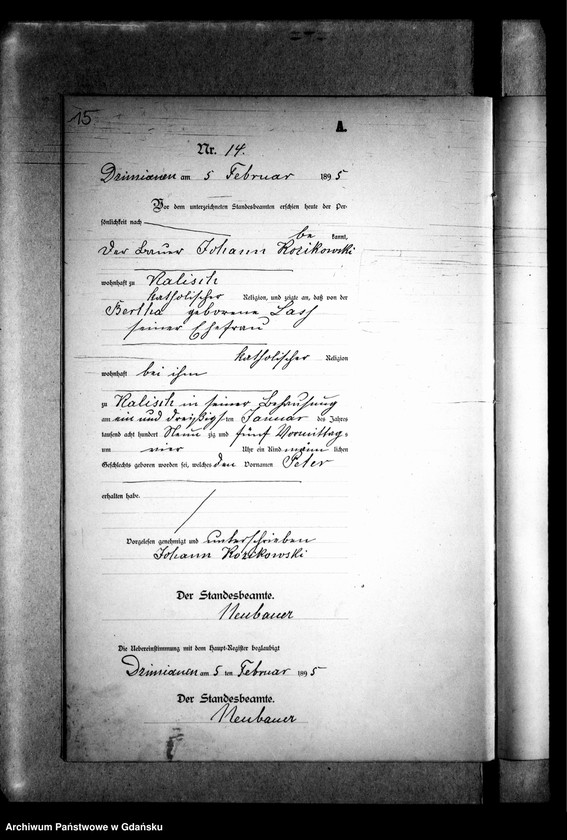 15
A.
Nr. 14.
Dzimianen am 5 Februar 1895
Vor dem unterzeichneten Standesbeamten erschien heute der Per-
sönlichkeit nach
be kannt,
der Bauer Johann Rozikowski
wohnhaft zu Kalisch
katholischer Religion, und zeigte an, daß von der
Bertha geborene Lass
seiner Ehefrau
katholischer Religion
wohnhaft bei ihm
zu Kalisch in seiner Behausung
am ein und dreißigsten Januar des Jahres
tausend acht hundert Neun zig und fünf Vormittag s
um vier Uhr ein Kind männ lichen
Geschlechts geboren worden sei, welches den Vornamen Peter
erhalten habe.
Vorgelesen genehmigt und unterschrieben
Johann Rozikowski
Der Standesbeamte.
Neubauer
Die Uebereinstimmung mit dem Haupt-Register beglaubigt
Dzimianen am 5 ten Februar 1895
Der Standesbeamte.
Neubauer
Archiwum Państwowe w Gdańsku